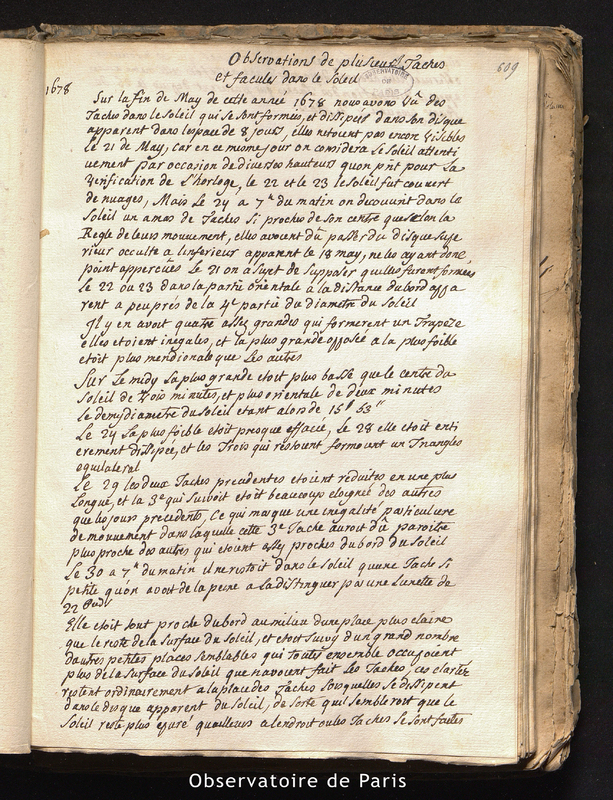 Observations de plusieurs Taches
609
et facules dans le Soleil
1678
Sur la fin de May de cette année 1678 nous avons Vû des
Taches dans le Soleil qui se sont formées, et dissipées dans son disque
apparent dans l'espace de 8 jours, elles n'etoient pas encore Visibles
Le 21 de May, Car en ce mesme jour on considera Le Soleil attenti
uement par occasion de diverses hauteurs qu'on prit pour La
Verification de L'horloge, Le 22 et le 23 le Soleil fut couvert
de nuages, Mais Le 24 a 7h du matin on decouvrit dans Le
Soleil un amas de Taches Si proches de son centre que selon la
Regle de leurs mouvement, elles avoient dû passer du disque supe
rieur occulte a l'inferieur apparent le 18 may, ne les ayant donc
point apperçües Le 21 on a Sujet de Supposer qu'elles furent formées
Le 22 ou 23 dans la partie orientale a la distance du bord appa
rent a peu prés de la 4e partie du diametre du Soleil
Il y en avoit quatre assez grandes qui formerent un Trapeze
elles etoient inegales, et la plus grande opposée a la plus foible
etoit plus meridionale que Les autres
Sur Le midy La plus grande etoit plus basse que le centre du
Soleil de Trois minutes, et plus orientale de deux minutes
le demydiametre du Soleil etant alors de 15' 53"
Le 27 La plus foible etoit presque effacée, Le 28 elle etoit enti
erement dissipée, et les Trois qui restoient formoient un Triangle
equilateral
Le 29 les deux Taches precedentes etoient réduites en une plus
Longue, et la 3e qui Suivoit etoit beaucoup eloignée des autres
que les jours precedents, Ce qui marque une inegalité particuliere
de mouvement dans laquelle cette 3e Tache auroit dû paroitre
plus proche des autres qui etoient assez proches du bord du Soleil
Le 30 a 7h du matin il ne restoit dans le Soleil qu'une Tache Si
petite qu'on avoit de la peine a La distinguer par une Lunette de
22 Pieds
Elle etoit tout proche du bord au milieu d'une place plus claire
que le reste de la Surface du Soleil, et etoit Suivy d'un grand nombre
d'autres petites places Semblables qui Toutes ensemble occupoient
plus de la Surface du Soleil que n'avoient fait les Taches, ces clartez
restent ordinairement a la place des Taches Lorsquelles Se dissipent
dans le disque apparent du Soleil, de sorte qu'il Sembleroit que le
Soleil reste plus epuré qu'ailleurs a l'endroit ou les Taches Se sont faites
Observatoire de Paris